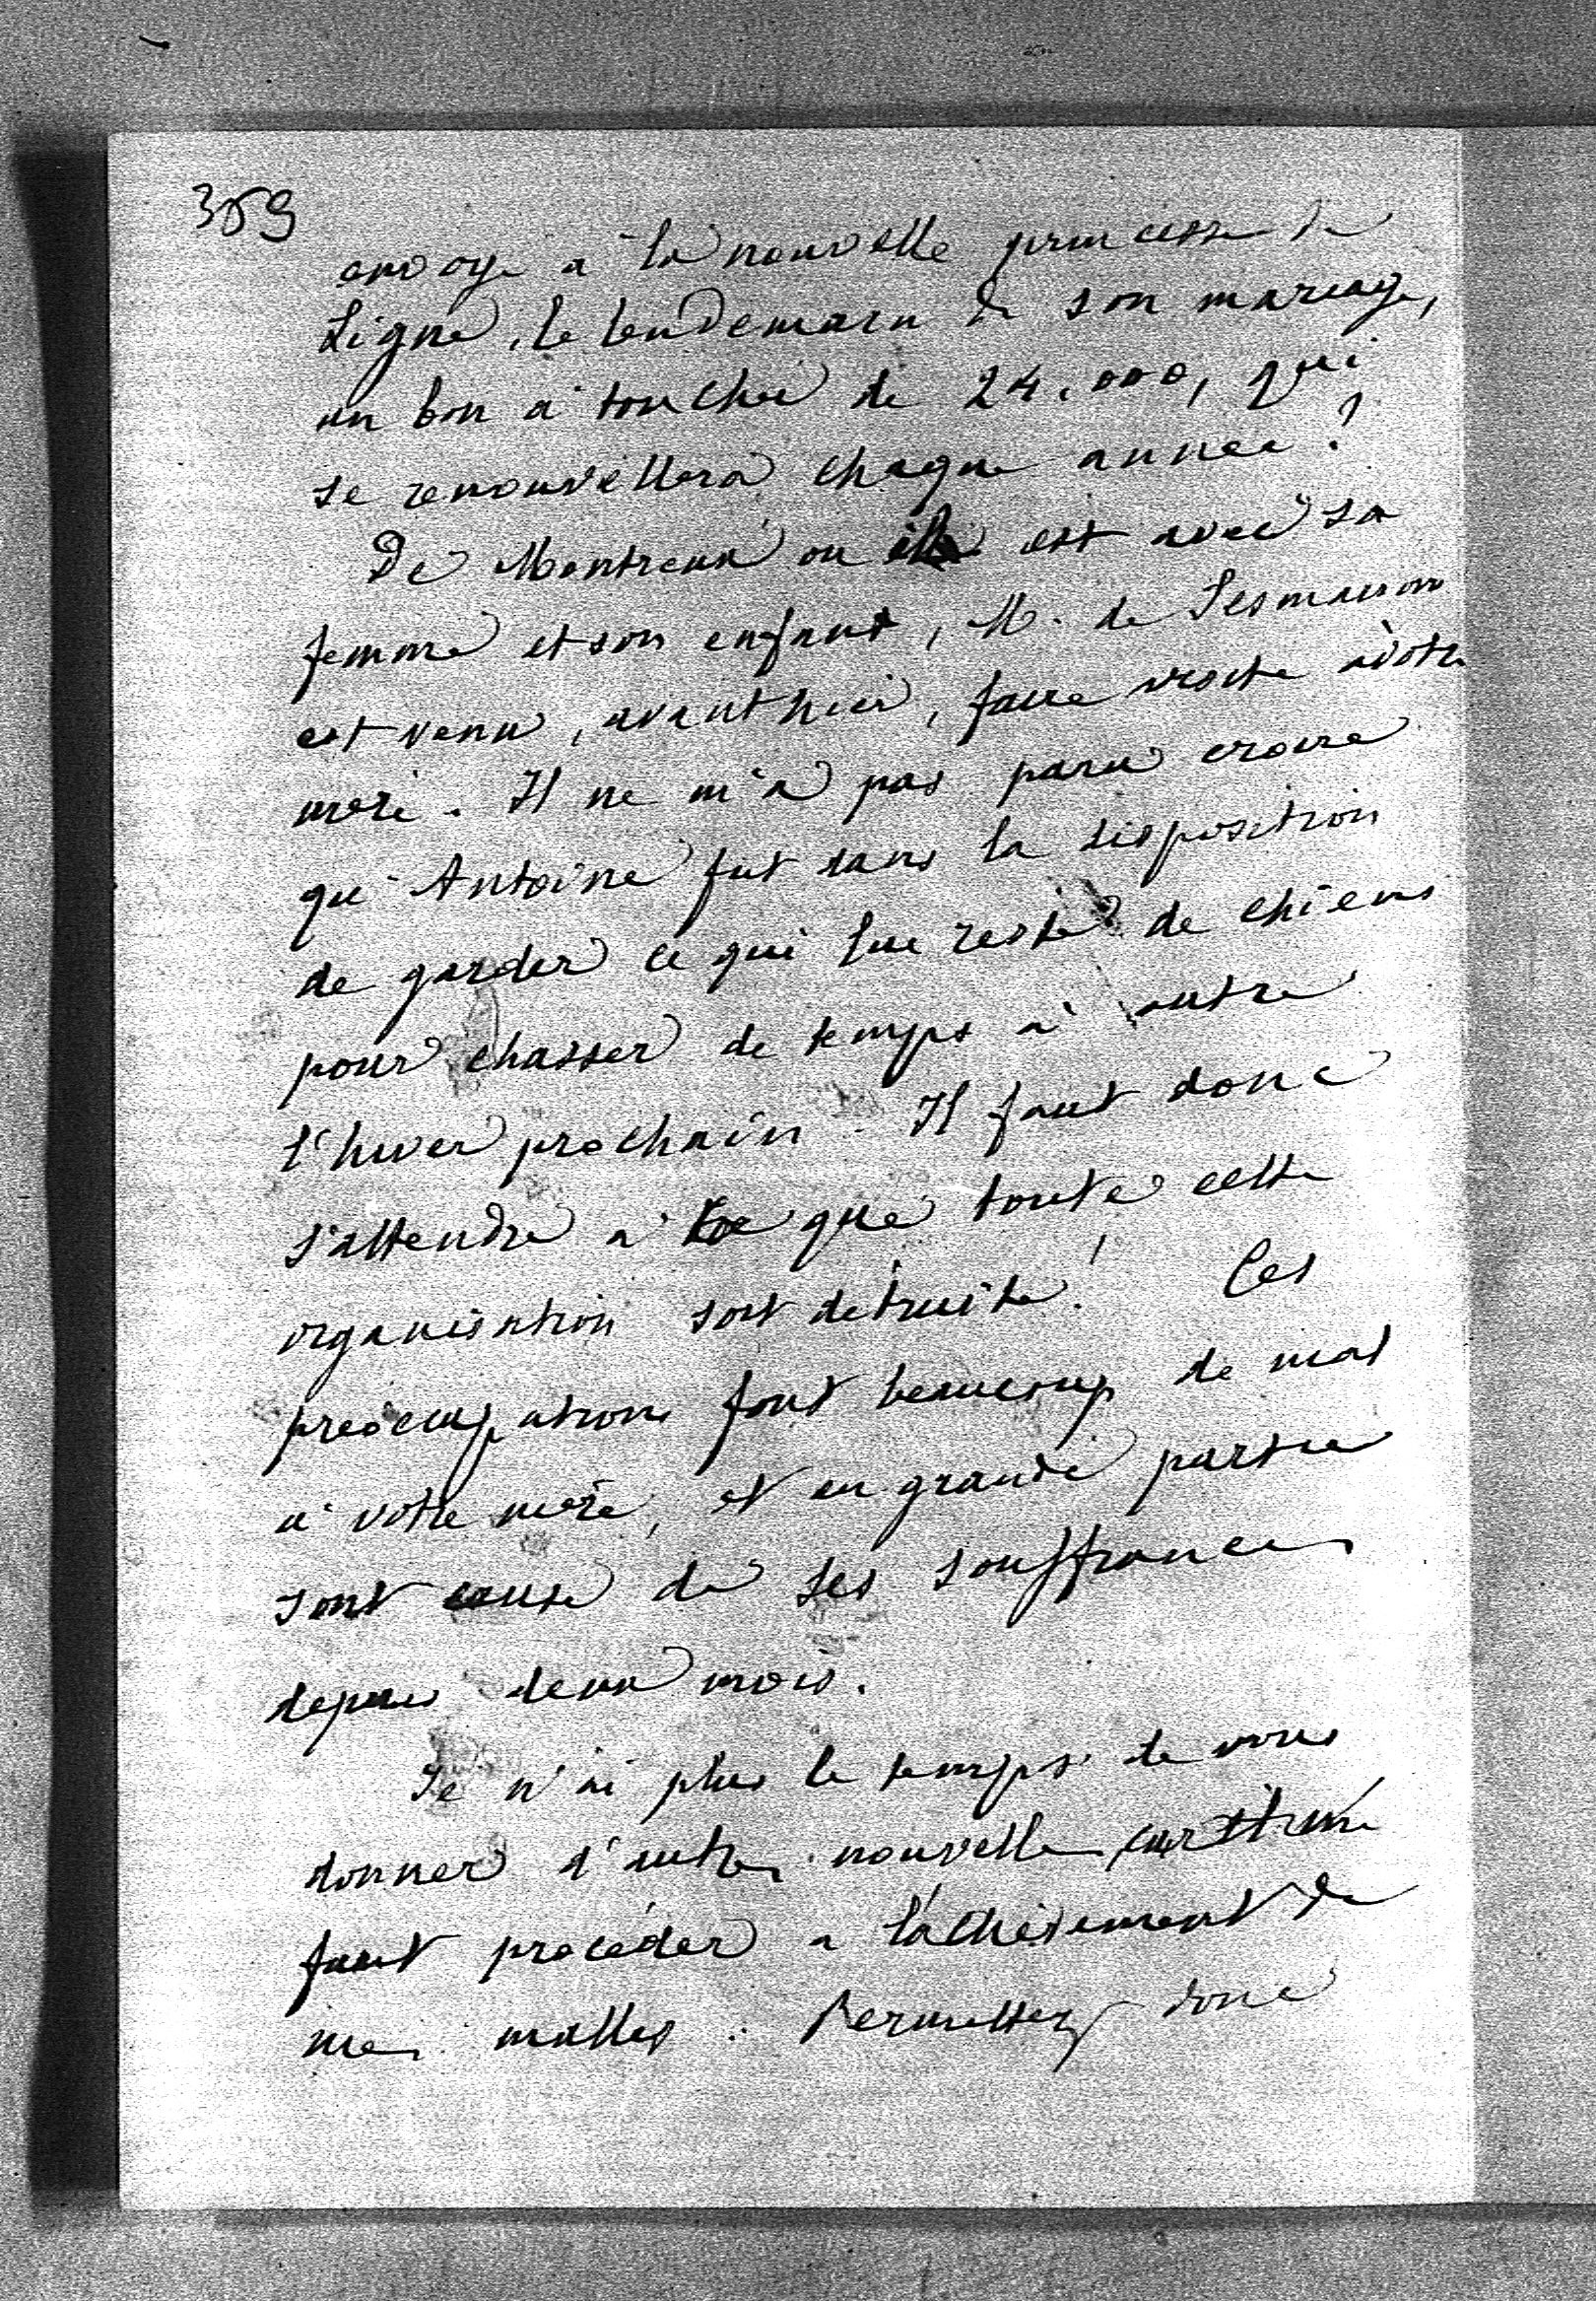 359
envoyé à la nouvelle princesse de
Ligne, le lendemain de son mariage,
un bon à touché de 24.000, qui
se renouvellera chaque année?
De Montreux ou il est avec sa
femme et son enfant, M. de Sesmaisons
est venu, avant hier, faire visite à votre
mère. Il ne m'a pas paru croire
qu'Antoine fut dans la disposition
de garder ce qui lui reste de chiens
pour chasser de temps à autre
l'hiver prochain. Il faut donc
s'attendre à ce que toute cette
organisation soit détruite! Ces
préoccupations font beaucoup de mal
à votre mère, et en grande partie
sont cause de ses souffrances
depuis deux mois.
Je n'ai plus le temps de vous
donner d'autres nouvelles, car il me
faut procéder a l'achèvement de
mes malles. Permettez donc